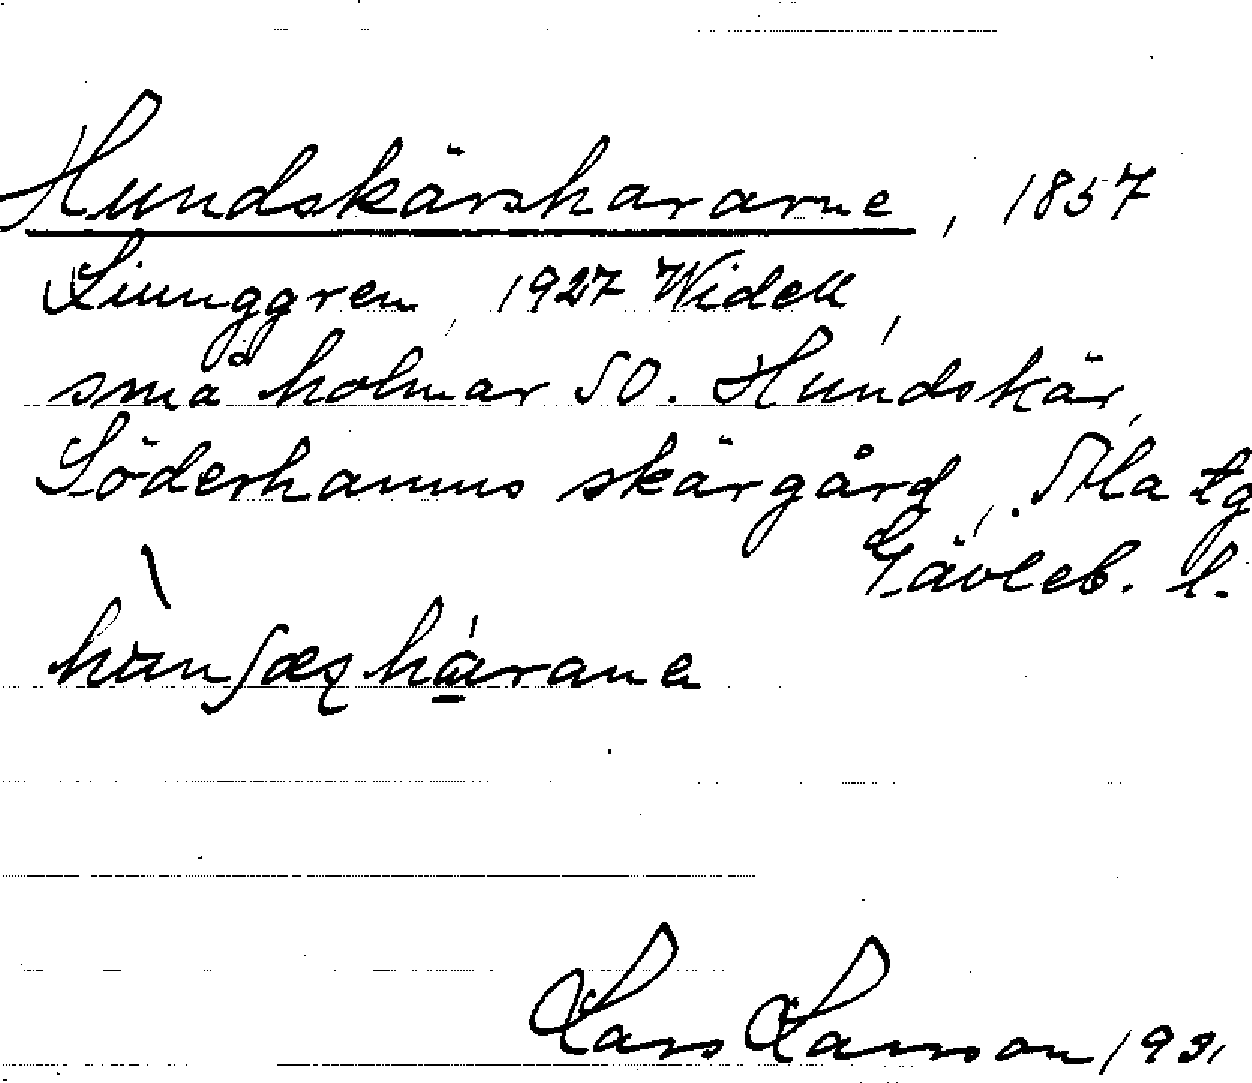 Hundskärshararne, 1857
Ljunggren, 1927 Widell,
små holmar SO. Hundskär,
Söderhamns skärgård, . Ala tg
Gävleb. l.
Lars Larsson 1931